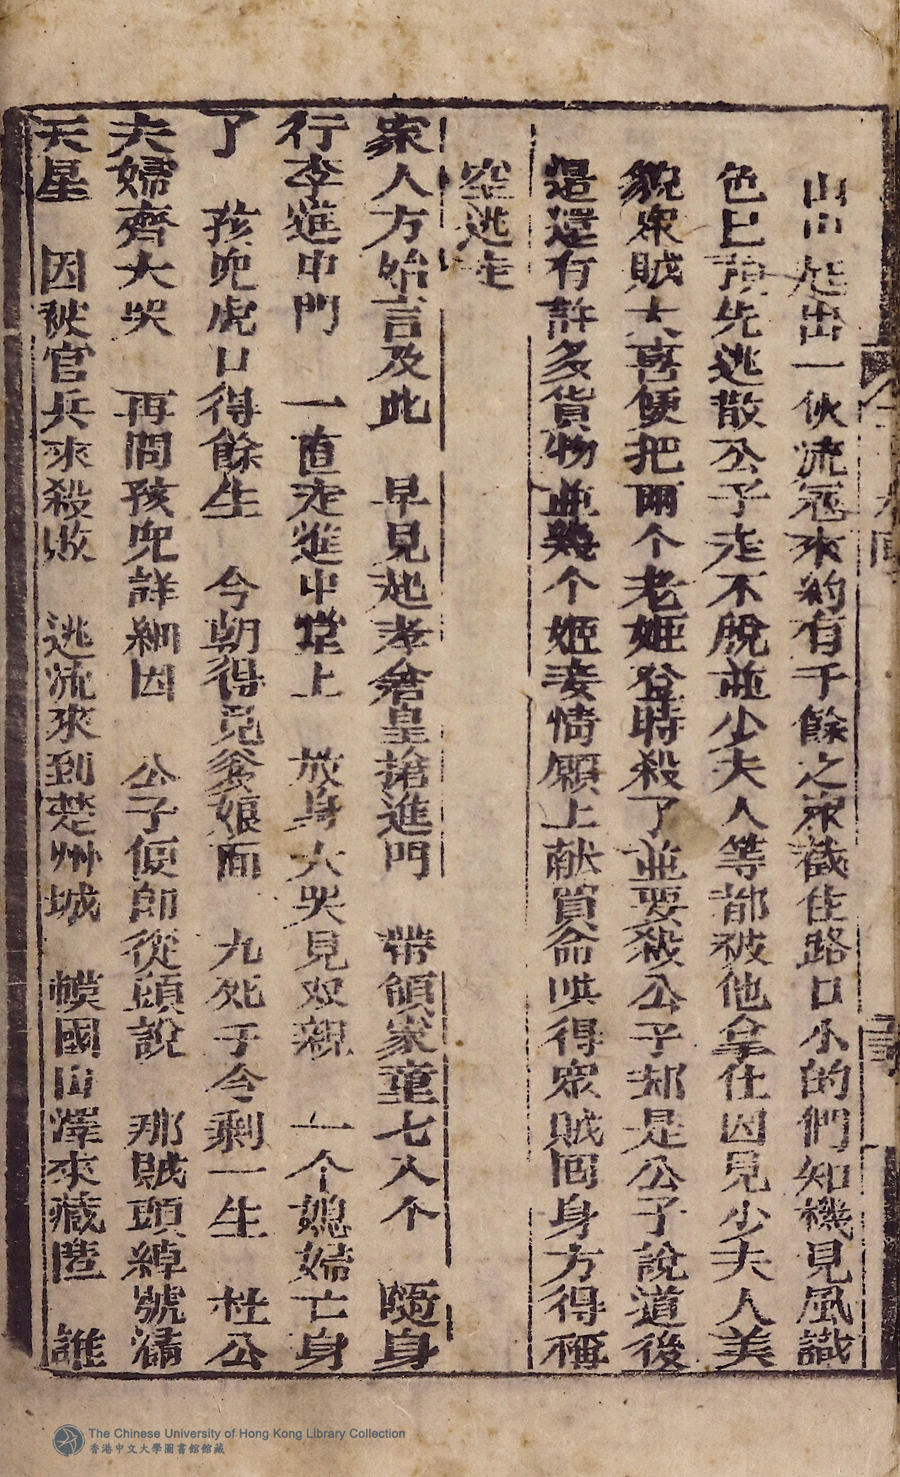 山中起出一伙流冠來約有千餘之衆截住路口小的們知機見風識
色已預先逃散公子走不脫並少夫人等都被他拿住因見少夫人美
貌衆賊大喜便把兩个老姬登時殺了並要殺公子却是公子說道後
邊還有許多貨物並幾个姬妾情願上献買命哄得衆賊回身方得種
空逃走
家人方始言及此　早見起孝繪皇搶進門　帶領家童七八个　隨身
行李進中門　一直走進中堂上　放身大哭見双親　一个媳婦亡身
了　孩兜虎口得餘生　今朝得見爹娘面　九死于今剩一生　杜公
夫婦齊大哭　再問孩兜詳細因　公子便即從頭說　那賊頭綽號滿
天星　因被官兵來殺敗　逃流來到楚州城　幞國山澤來藏　誰
The Chinese University of Hong Kong Library Collection
香港中文大學圖書館館藏